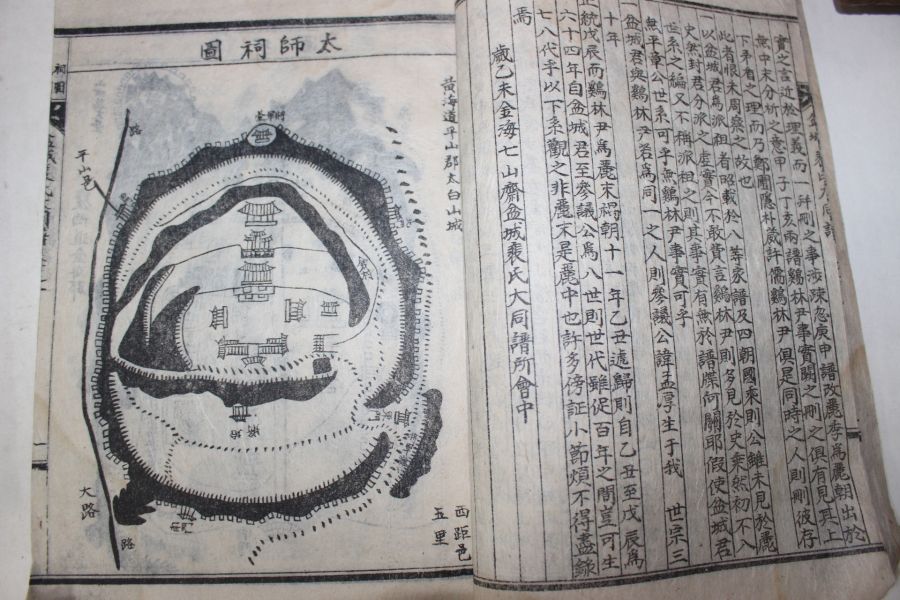 實之言近於理義而一幷刪之事涉疎忽庚申譜改麗季爲麗朝出於
無中末分析之意甲子丁亥兩譜鷄林尹事實闕之刪之俱有見其上
下矛盾之理而乃鄭圃隱朴葳許儒鷄林尹俱是同時之人則刪彼存
此者恨未周察之故也
一以盆城君爲派祖者昭載於八 家譜及四朝國乘則公雖未見於麗
史然封君分派之虛實今不敢贅言鷄林尹則多見於史乘然初不入
世系之編又不稱派祖之則其事實有無於譜牒何關耶假使盆城君
無平章公世系可乎無鷄林尹事實可乎
盆城君與鷄林尹若爲同一之人則參議公諱孟厚生于我 世宗三
十年
正統戊辰而鷄林尹爲麗末禑朝十一年乙丑遞歸則自乙丑至戊辰爲
六十四年自盆城君至參議公爲八世則世代雖促百年之間豈可生
七八代乎以下系觀之非麗末是麗中也許多傍証小節煩不得盡錄
焉
歲乙未金海七山齋盆城裵氏大同譜所會中
太師祠圖
黃海道平山郡太白山城
將軍臺
路
平山邑
東門
西距邑
五里
大路
路
祠圖